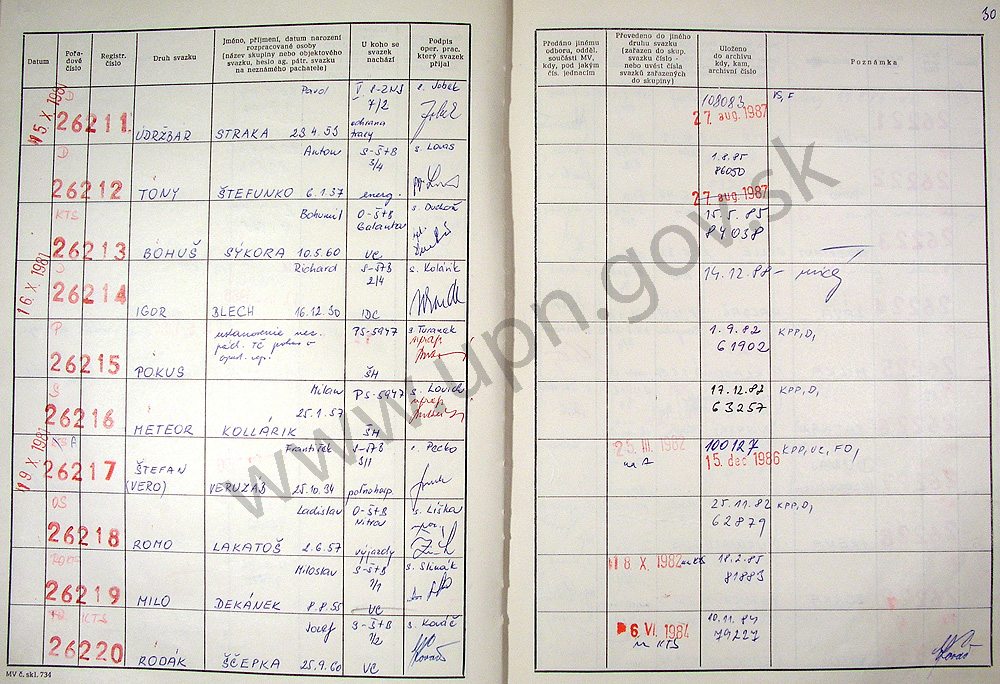 30
Datum
Pořadové číslo
Registr. číslo
Druh svazku
Jméno, příjmení, datum narození
rozpracované osoby
(název skupiny nebo objektového
svazku, heslo ag. pátr. svazku
na neznámého pachatele)
U koho se
svazek
nachází
Podpis
oper. prac.
který svazek
přijal
Předáno jinému
odboru, odděl.
součásti MV,
kdy, pod jakým
čís. jednacím
Převedeno do jiného
druhu svazku
(zařazen do skup.
svazku číslo -
nebo uvést čísla
svazků zařazených
do skupiny)
Uloženo
do archivu
kdy, kam,
archivní číslo
Poznámka
15. X. 1981
D
26211
ÚDRŽBAR
Pavol
STRAKA 23.4.55
7/2
ochrana
trasy
s. Jobek
108083
27. aug. 1987
D
26212
TONY
Anton
ŠTEFUNKO 6.1.37
S-ŠtB
3/4
energ.
s. Lovas
1.8.85
86050
27. aug. 1987
KTS
26213
BOHUŠ
Bohumil
SÝKORA 10.5.60
O-ŠtB
Galanta
VC
s. Duchoň
15.5.85
84038
16. X. 1981
D
26214
IGOR
Richard
BLECH 16.12.30
S-ŠTB
2/4
IDC
s. Kolárik
19.12.88 -
P
26215
POKUS
PS-5947
ŠH
s. Turanek
1.9.82
61902
KPP, D,
S
26216
METEOR
Milan
25.1.57
KOLLÁRIK
PS-5947
ŠH
s. Lovich
17.12.82
63257
KPP, D,
19. X. 1981
A
26217
ŠTEFAN
(VERO)
František
VERUZAB 25.10.34
S-ŠTB
poľnohosp.
s. Pecho
25. III. 1982
na A
100127
15. dec 1986
KPP, VC, FO,
OS
26218
ROMO
Ladislav
LAKATOŠ 2.6.57
O-ŠtB
Nitra
výjazdy
s. Liška
25.11.82
62879
KPP, D,
26219
MILO
Miloslav
DEKÁNEK 8.8.55
S-ŠtB
VC
s. Slinák
18. X. 1982
na KTS
18.2.85
81883
KTS
26220
RODÁK
Jozef
ŠČEPKA 25.9.60
S-ŠtB
7/2
VC
s. Kováč
6. VI. 1984
na KTS
10.11.84
79227
MV č. skl. 734
www.upn.gov.sk